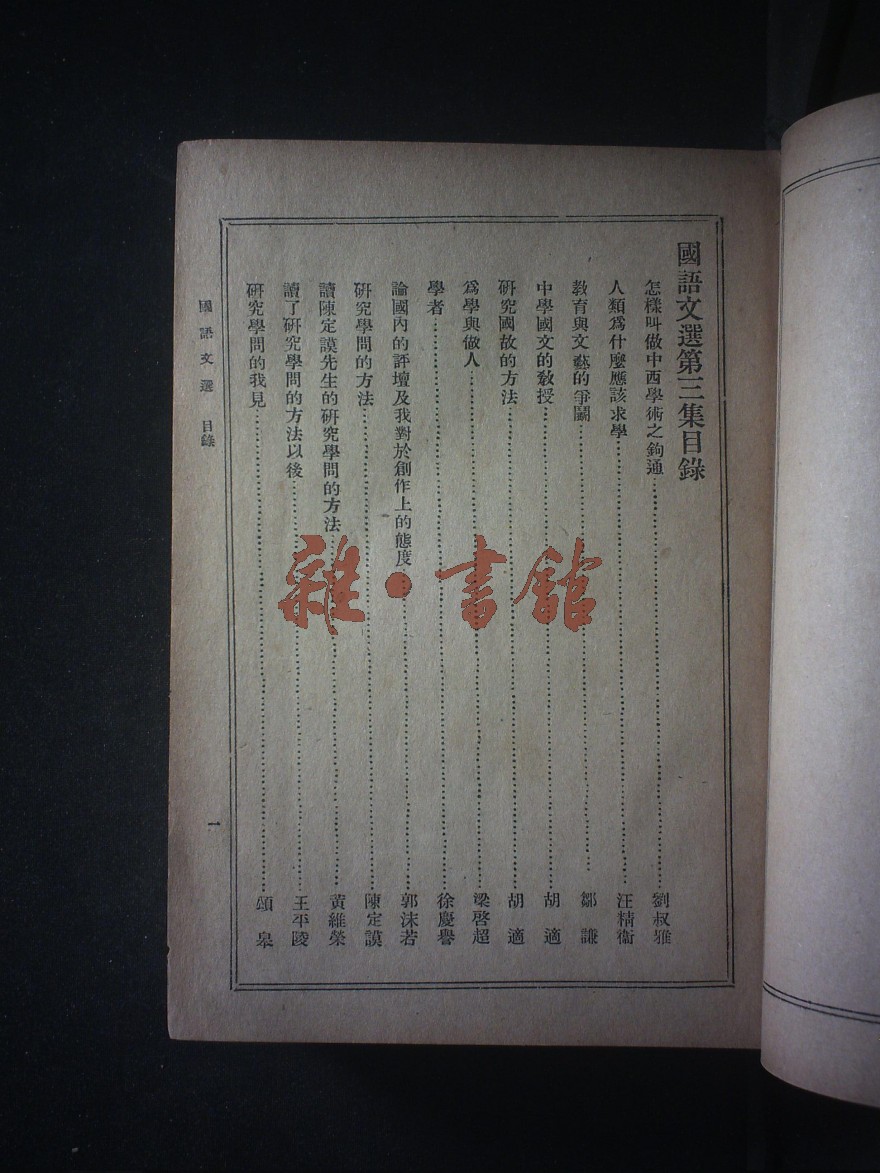 國語文選第三集目錄
怎樣叫做中西學術之鉤通………劉叔雅
人類爲什麼應該求學………汪精衞
敎育與文藝的爭鬭………鄒謙
中學國文的敎授………胡適
硏究國故的方法………胡適
爲學與做人………梁啓超
學者………徐慶譽
論國內的評壇及我對於創作上的態度………郭沫若
硏究學問的方法………陳定謨
讀陳定謨先生的硏究學問的方法………黄維榮
讀了硏究學問的方法以後………王平陵
硏究學問的我見………頌臯
國語文選 目錄
一
雜·書館